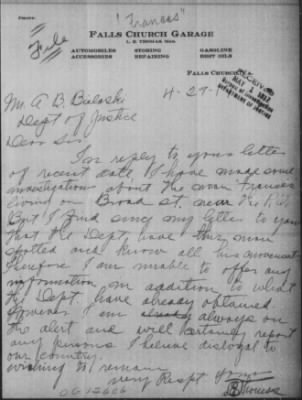 "Frances"
PHONE:
File
FALLS CHURCH GARAGE
L. E. THOMAS, Mgr.
AUTOMOBILES STORING GASOLINE
ACCESSORIES REPAIRING BEST OILS
FALLS CHURCH
RECEIVED
MAY 1 1917
DEPARTMENT OF JUSTICE
4-29-
Mr. A B. Bielaski
Dept of Justice
Dear Sir:
In reply to your letter
of recent date I have made some
investigations about the man Frances
living on Broad St. near the R.R.
But I find since my letter to you
that the Dept. have this man
spotted and know all his movements
therefore I am unable to offer any
information in addition to what
the Dept. have already obtained.
However I am already always on
the alert and will certainly report
any persons I believe disloyal to
our country.
wishing to remain
very Respt yours
Thomas
OG 12606